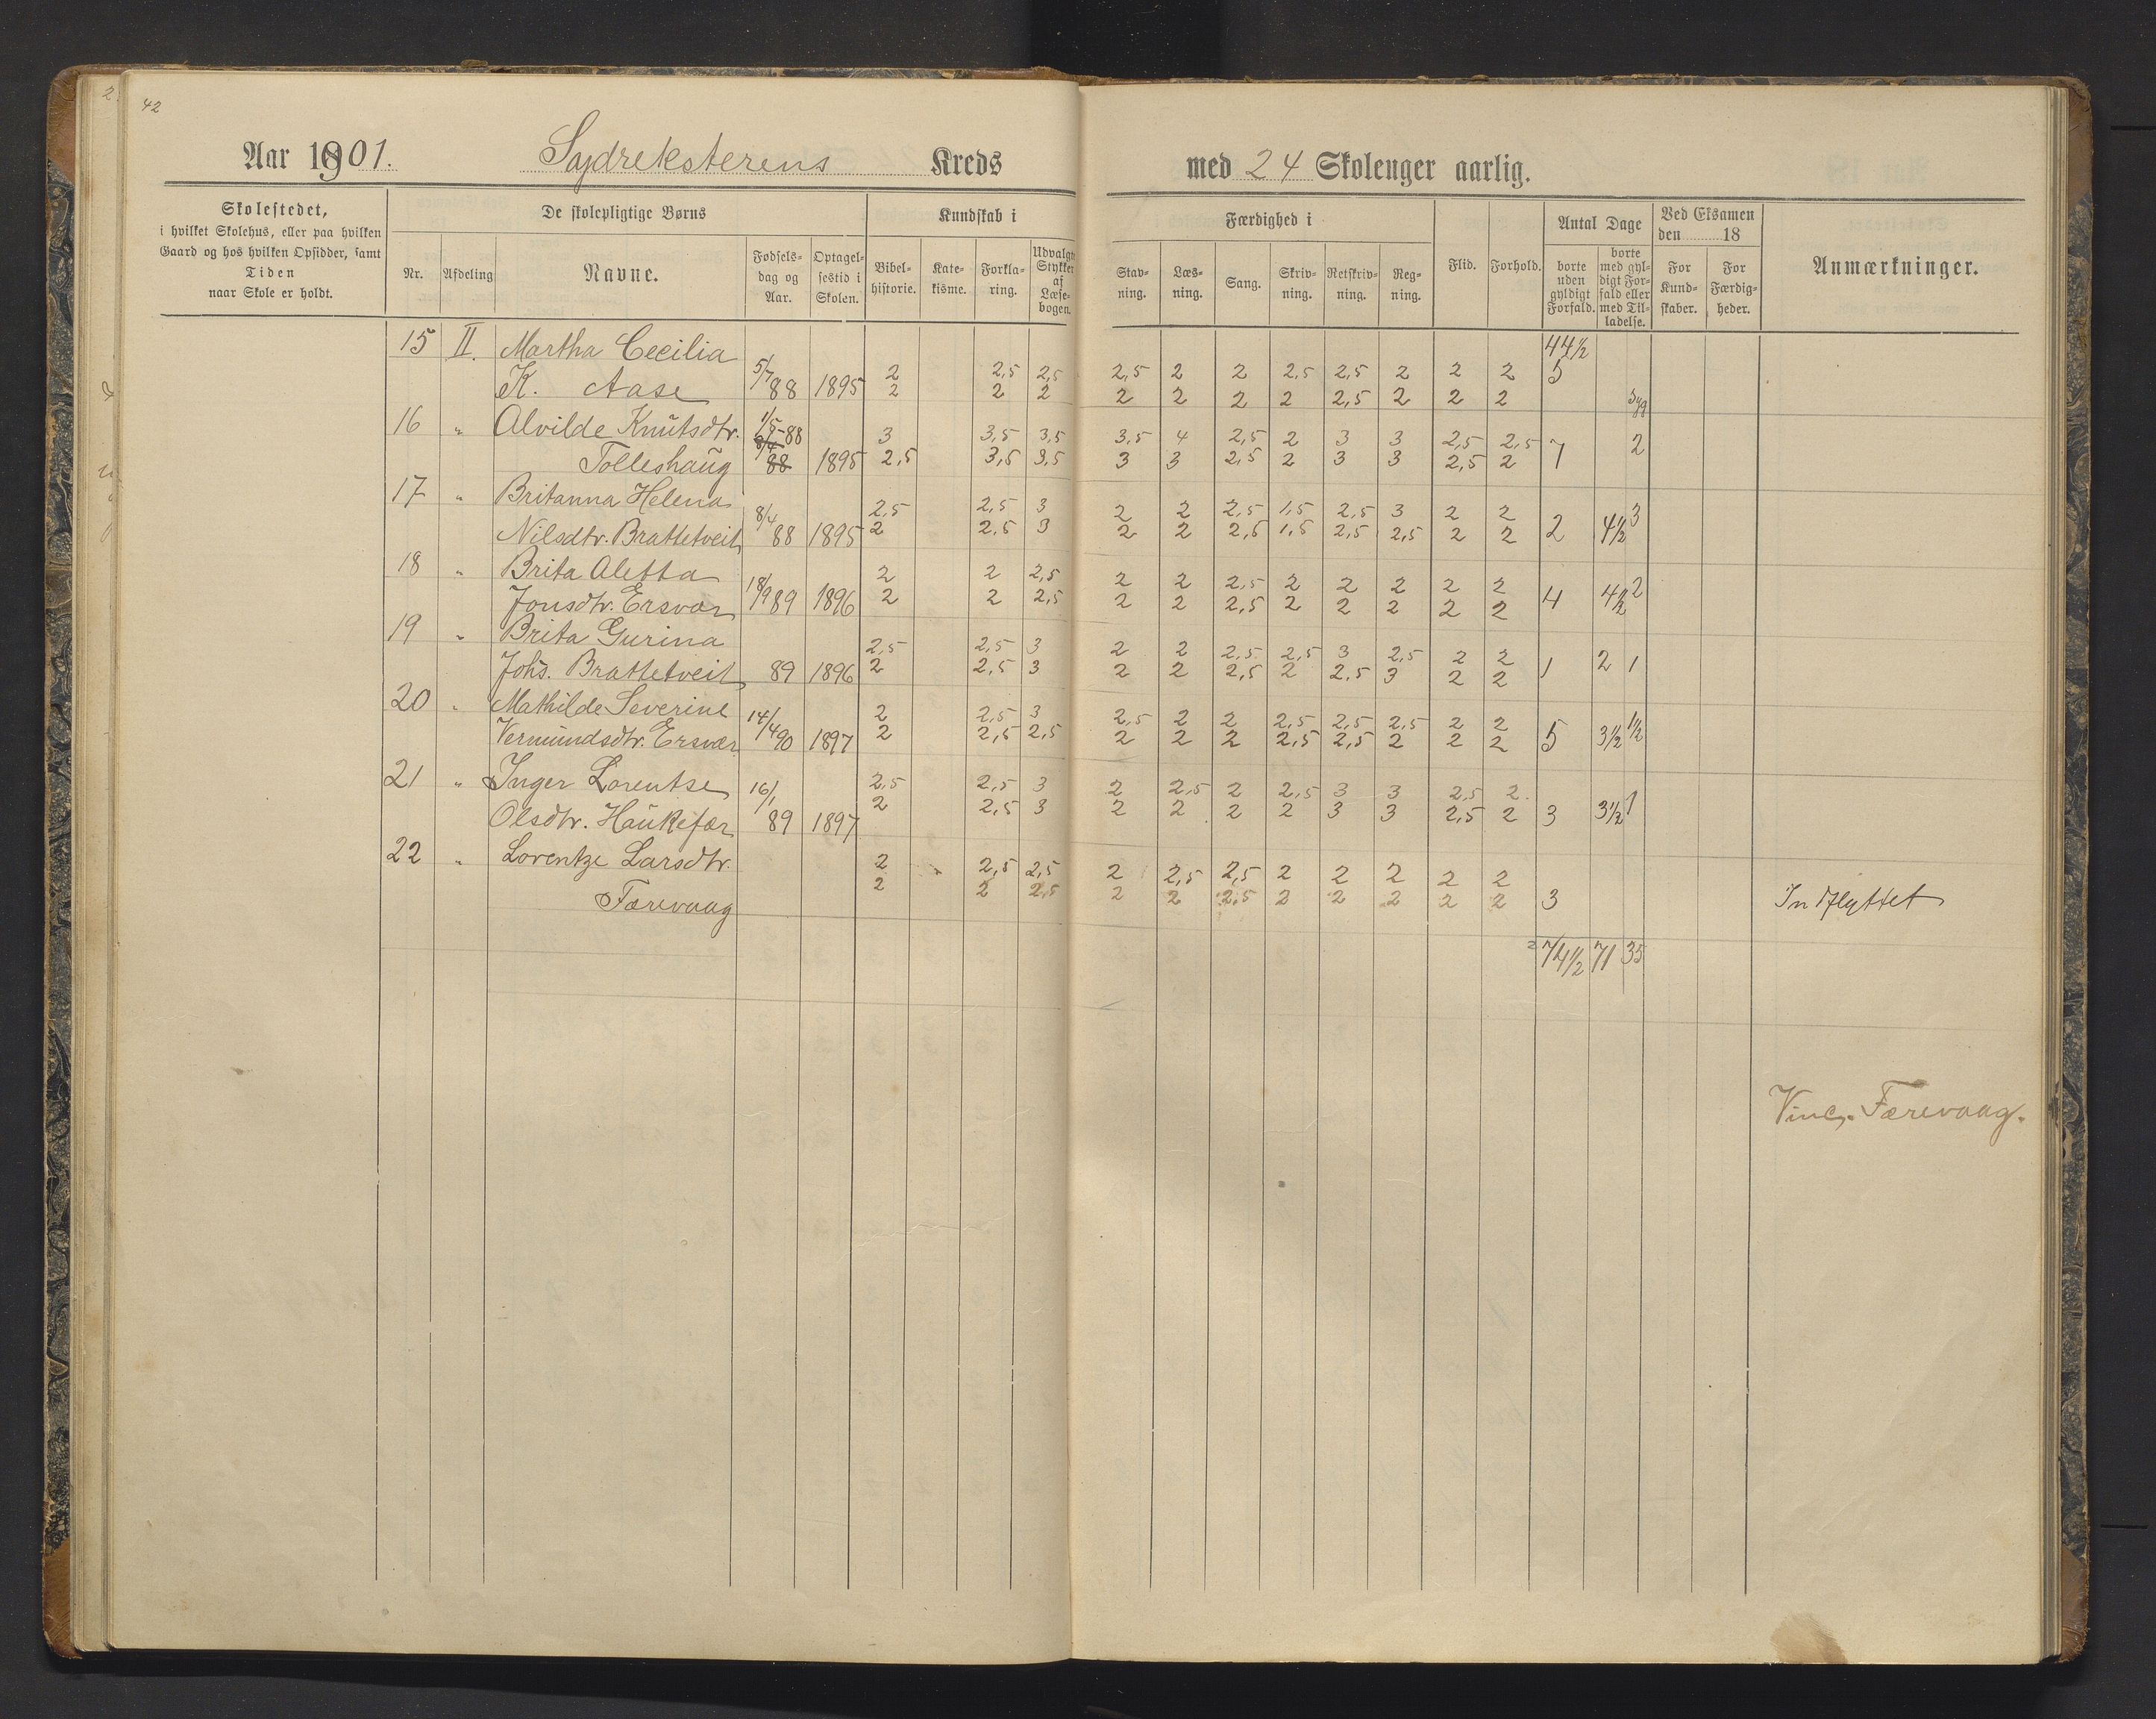 42
Aar 1901. Sydreksterens Kreds med 24 Skolenger aarlig.
Skolestedet,
i hvilket Skolehus, eller paa hvilken
Gaard og hos hvilken Opsidder, samt
Tiden
naar Skole er holdt.
De skolepligtige Børns
Nr. Afdeling Navne. Fødsels-dag og Aar. Optagelsestid i Skolen.
Kundskab i
Bibelhistorie. Katekisme. Forklaring. Udvalgte Stykker af Læsebogen.
Færdighed i
Stavning. Læsning. Sang. Skrivning. Retskrivning. Regning.
Flid. Forhold.
Antal Dage
borte uden gyldigt Forfald. borte med gyldigt Forfald eller med Tilladelse.
Ved Eksamen
den 18
For Kundskaber. For Færdigheder.
Anmærkninger.
44½
15 II. Martha Cecilia 2 2,5 2,5 2,5 2 2 2,5 2,5 2 2 2 5
K. Aase 5/7 88 1895 2 2 2 2 2 2 2 2,5 2 2 2 syg
16 " Alvilde Knutsdtr. 1/5-88 3 3,5 3,5 3,5 4 2,5 2 3 3 2,5 2,5 7 2
Tolleshaug 88 1895 2,5 3,5 3,5 3 3 2,5 2 3 3 2,5 2
17 " Britanna Helena 2,5 2,5 3 2 2 2,5 1,5 2,5 3 2 2 3
Nilsdtr. Brattetveit 8/4 88 1895 2 2,5 3 2 2 2,5 1,5 2,5 2,5 2 2 2 4½
18 " Brita Aletta 2 2 2,5 2 2 2,5 2 2 2 2 2 2
Jonsdtr. Ersvær 18/9 89 1896 2 2 2,5 2 2 2,5 2 2 2 2 2 4 4½
19 " Brita Gurina 2,5 2,5 3 2 2 2,5 2,5 3 2,5 2 2
Johs. Brattetveit 89 1896 2 2,5 3 2 2 2,5 2 2,5 3 2 2 1 2 1
20 " Mathilde Severine 2 2,5 3 2,5 2 2 2,5 2,5 2,5 2 2 1½
Vermundsdtr. Ersvær 14/4 90 1897 2 2,5 2,5 2 2 2 2,5 2,5 2 2 2 5 3½
21 " Inger Lorentse 2,5 2,5 3 2 2,5 2 2,5 3 3 2,5 2. 1
Olsdtr. Haukefær 16/1 89 1897 2 2,5 3 2 2 2 2 3 3 2,5 2 3 3½
22 " Lorentze Larsdtr. 2 2,5 2,5 2 2,5 2,5 2 2 2 2 2
Færevaag 2 2 2,5 2 2 2,5 2 2 2 2 2 3 Indflyttet
74½ 71 35
Vinc. Færevaag.